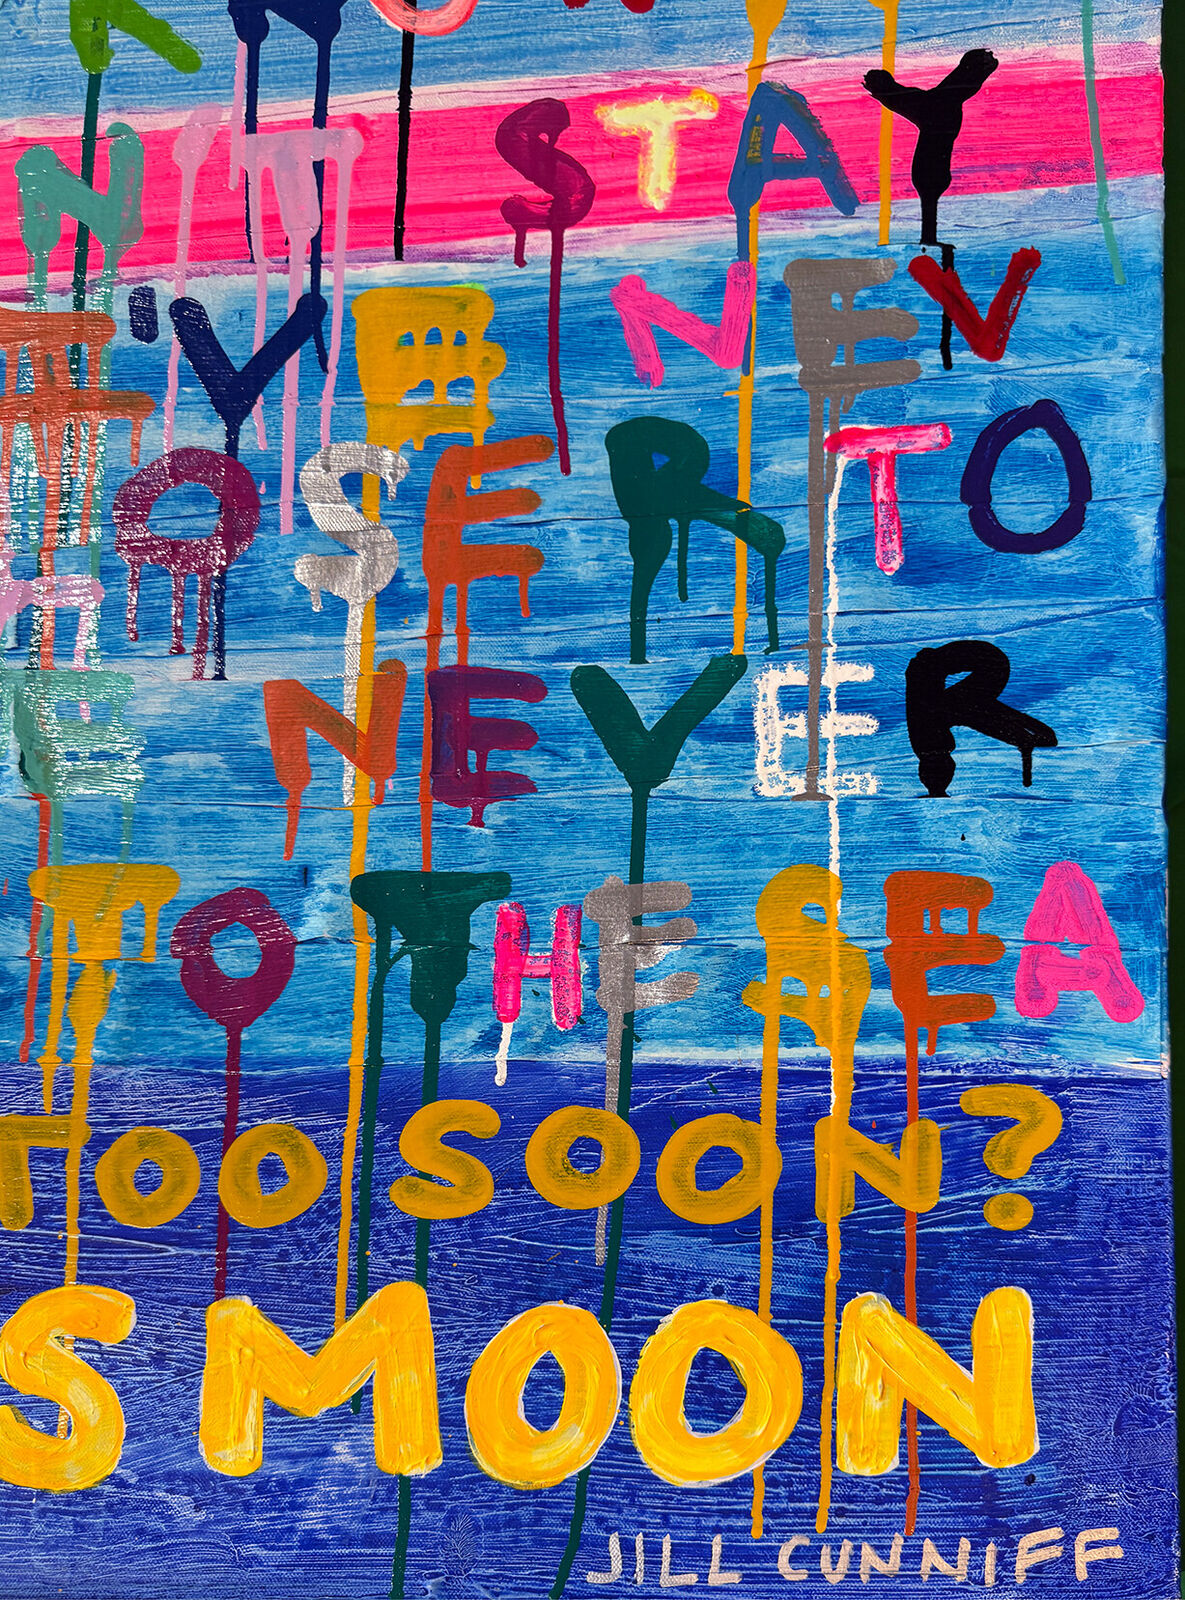 N'T STAY
I'VE NEV
OSER TO
E NEVER
TO THE SEA
TOO SOON?
S MOON
JILL CUNNIFF